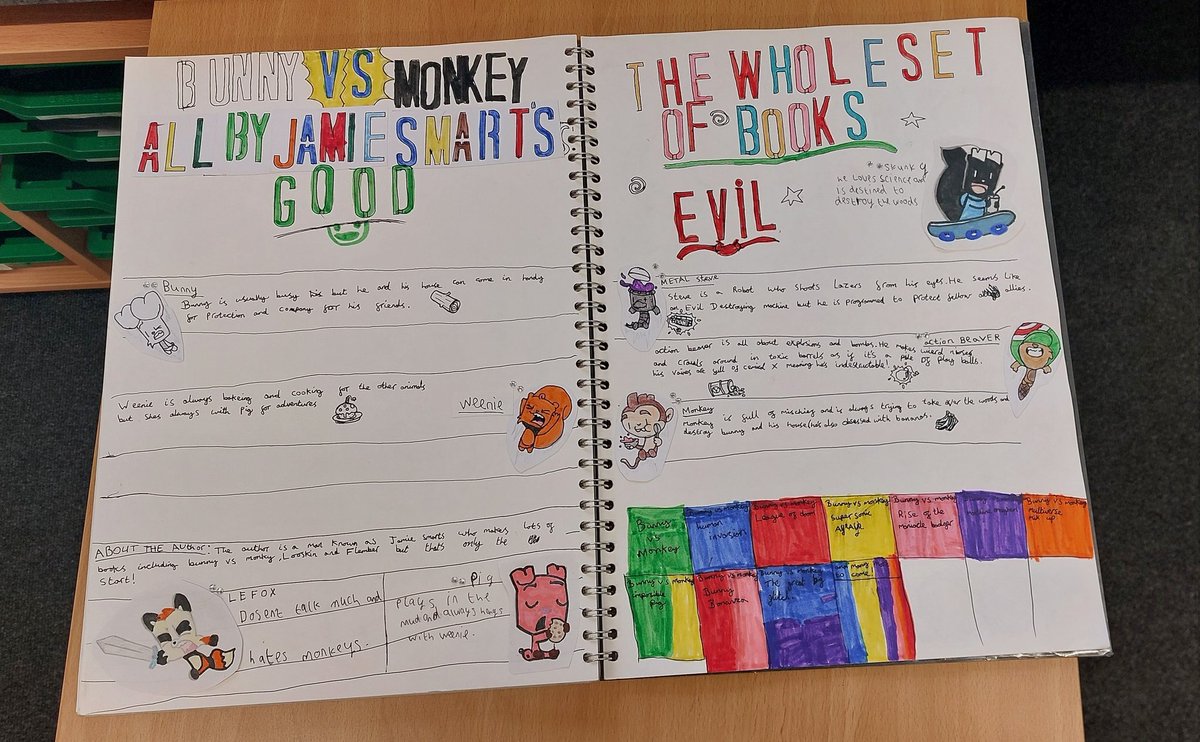 BUNNY VS MONKEY
ALL BY JAMIE SMART'S
GOOD
Bunny
Bunny is usually busy but he and his house can come in handy
for protection and company for his friends.
Weenie is always bakeing and cooking for the other animals
but shes always with Pig for adventures
Weenie
ABOUT THE AUTHOR: The author is a man known as Jamie smarts who makes lots of
books including bunny vs monkey, Looskin and Flember but thats only the
start!
LEFOX
Dosent talk much and
hates monkeys.
Pig
plays in the
mud and always hangs
with weenie.
THE WHOLE SET
OF BOOKS
EVIL
Skunky
he Loves science and
is destined to
destroy the woods
METAL steve
Steve is a Robot who shoots Lazers from his eyes. He seems Like
an Evil Destroying machine but he is programmed to protect fellow allies.
action BEAVER
action beaver is all about explosions and bombs. He makes wierd noises
and crawls around in toxic barrels as if it's a pile of play balls.
his vaines are full of meaning he's indestuctable!
Monkey
Monkey is full of mischief and is always trying to take over the woods and
destroy bunny and his house (he's also obsessed with bananas.
Bunny
vs
Monkey
Bunny vs monkey
human
invasion
Bunny vs. Monkey
League of doom
Bunny vs monkey
super sonic
Bunny vs monkey
Rise of the
maniacle badger
Bunny vs monkey
multiverse
mix up
Bunny vs Monkey
impossible
Pig
Bunny vs monkey
Bunny
Bonanza
The great big
glitch
and many
to come